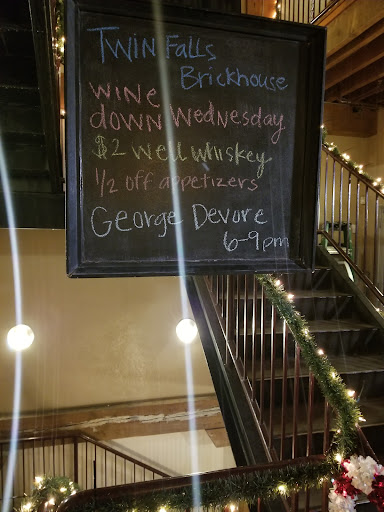 Twin Falls
Brickhouse
WINE
down Wednesday
$2 well whiskey
1/2 off appetizers
George Devore
6-9pm